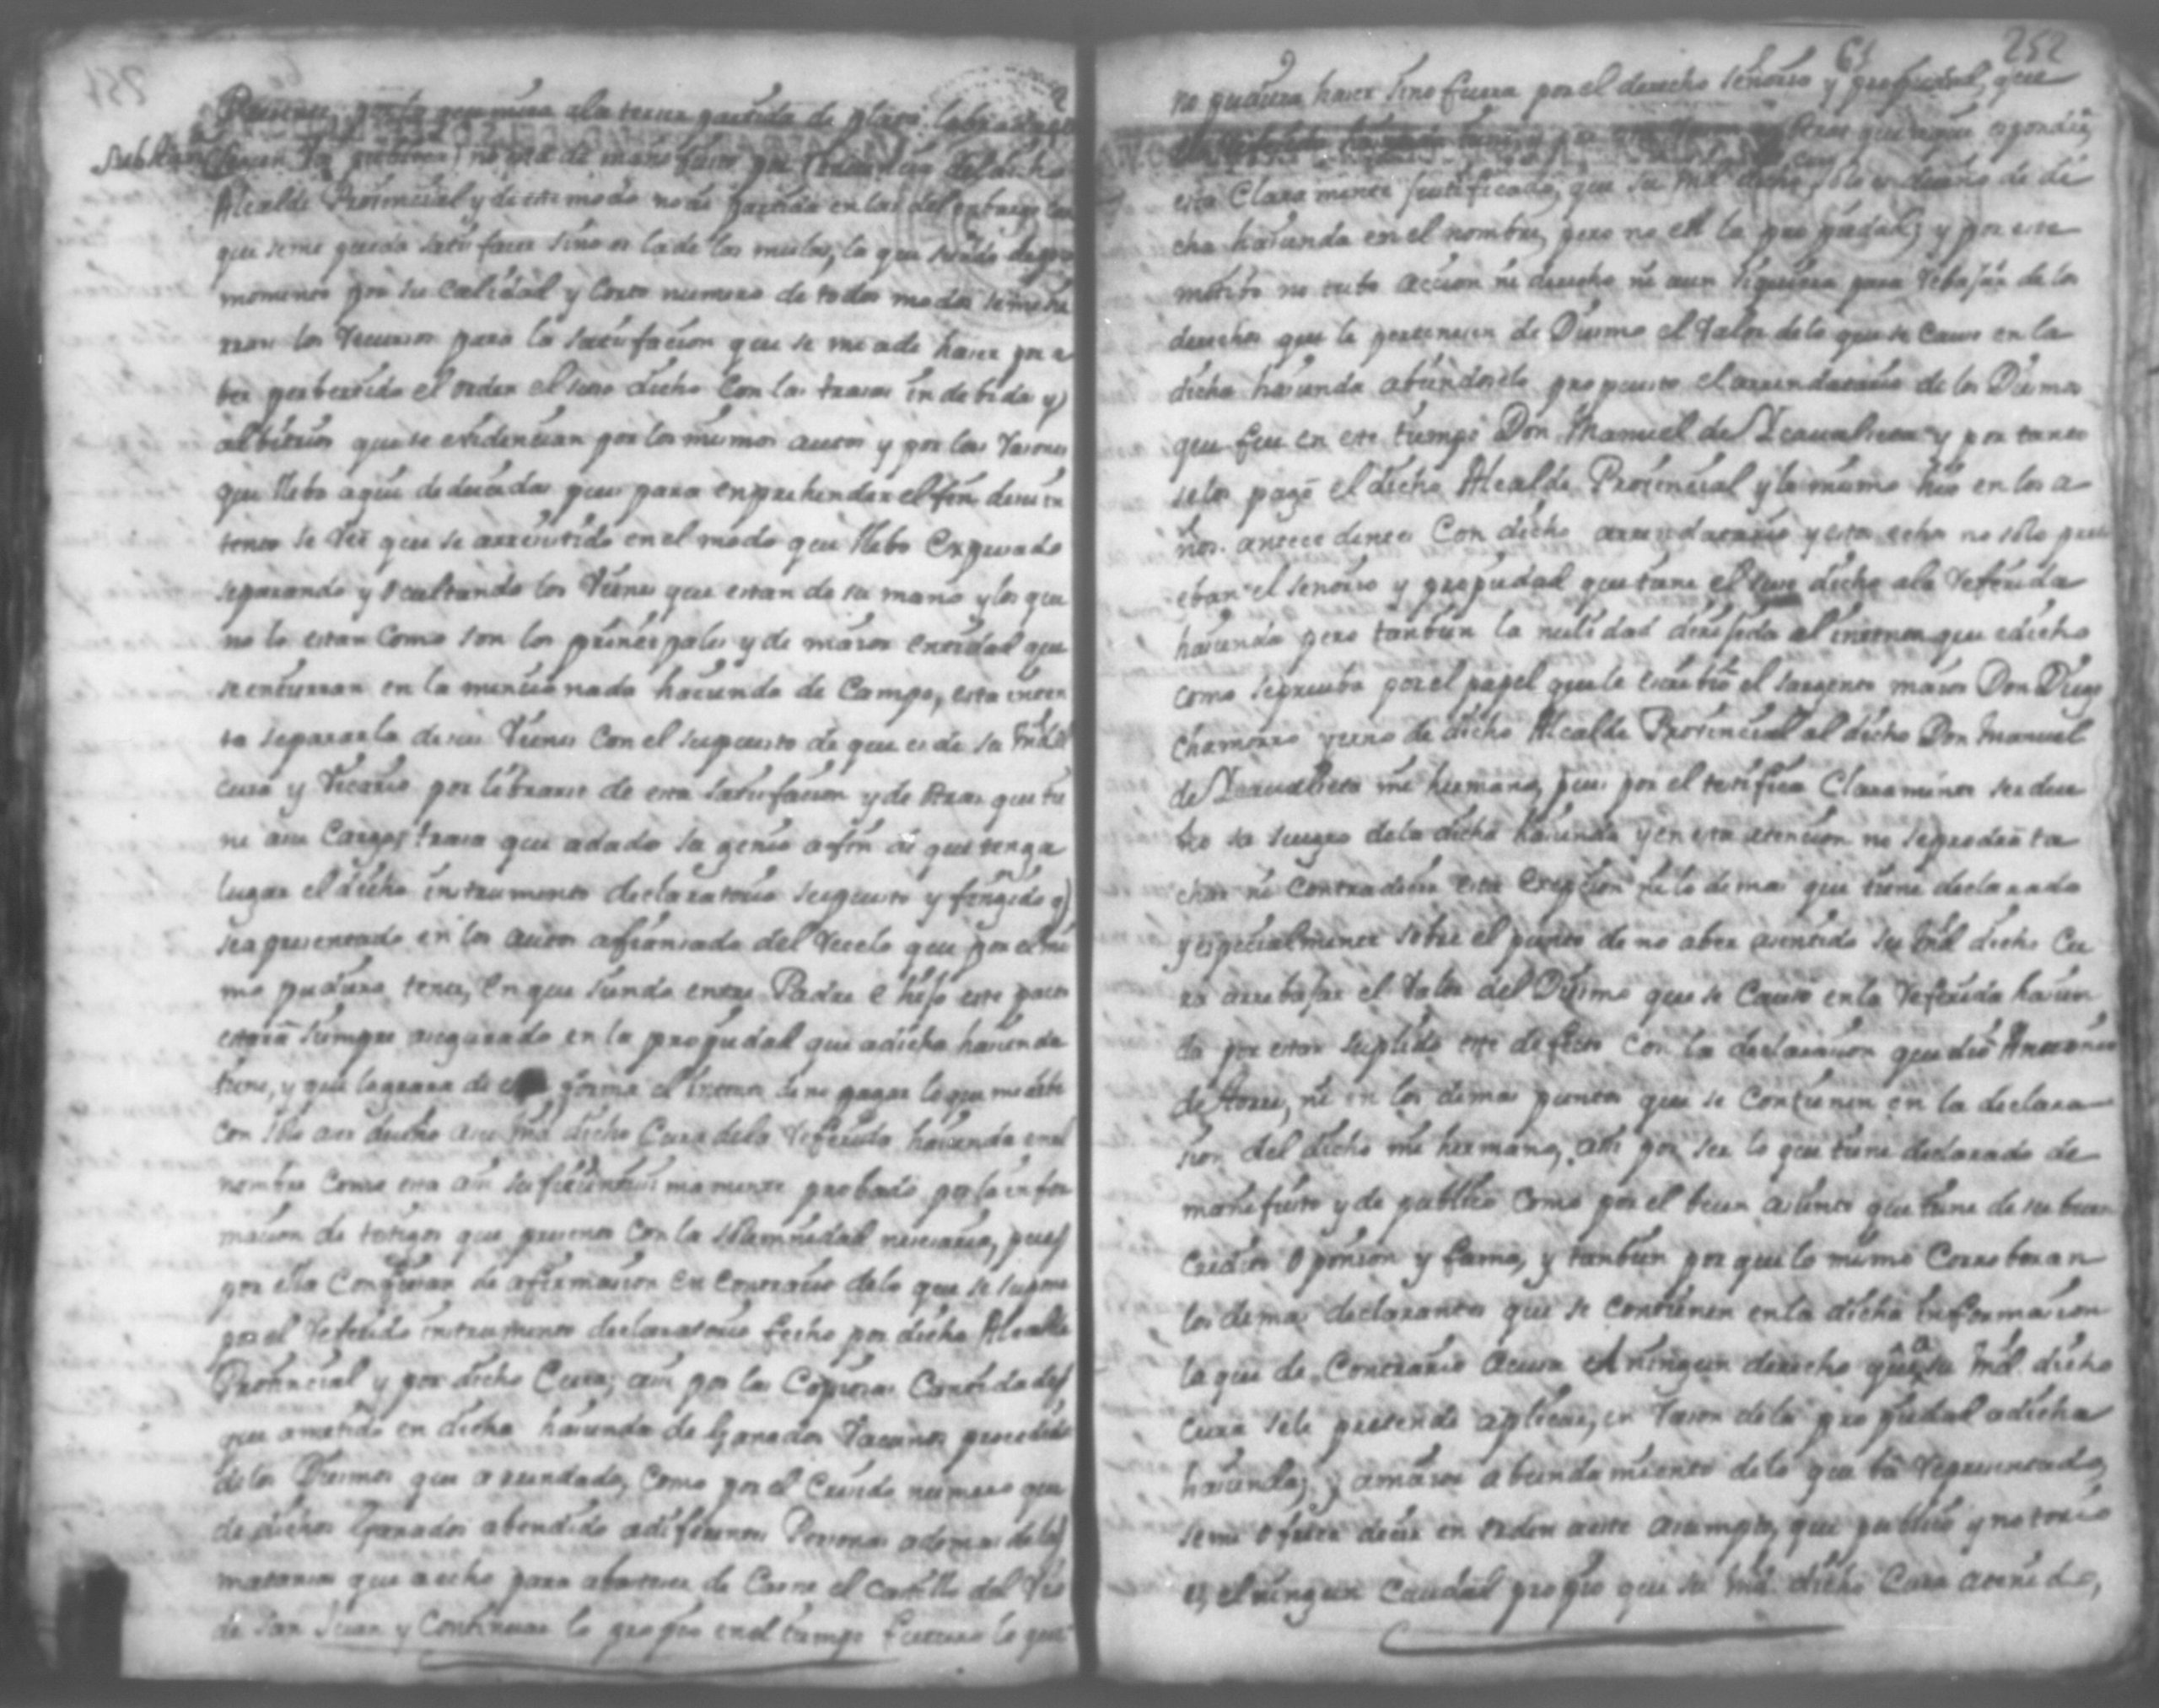 que mira ala tersera partida de plata labrada
no es de manifiesto que del dicho
Alcalde Provincial y de este modo no ai partida en las del embargo con
que se me pueda satisfacer sino es la de las mulas, la que siendo de poco
momento por su calidad y corto numero de todos modos se me
rran los recursos para la satisfacion que se me ade hacer por a
ber perbertido el orden el suso dicho con las trasas indebidas y
albitrios que se evidencian por los mismos autos y por las rasones
que llebo aqui deducidas pues para enprehender el fin de su in
tento se ve que se arresistido en el modo que llebo expresado
separando y ocultando los vienes que estan de su mano y los que
no lo estan como son los principales y de maior entidad que
se encierran en la mencionada hacienda de Campo, esta inten
ta separarla de sus vienes con el supuesto de que es de su Md el
cura y Vicario por librarse de esta satisfacion y de otras que tie
ne a su cargo traza que adado su genio afin de que tenga
lugar el dicho instrumento declaratorio supuesto y fingido q
sea presentado en los autos afiansado del recelo que por el mi
mo pudiera tener, en que siendo entre Padre e hijo este pacto
estara siempre asegurado en la propiedad que adicha hacienda
tiene, y que lograra de esta forma el intento de no pagar lo que me debe
con solo aser dueño a su Md dicho Cura dela referida hacienda en el
nombre como esta asi suficientissimamente probado por la infor
macion de testigos que presento con la solemnidad necesaria, pues
por ella de afirmacion en contrario delo que se supone
por el referido instrumento declaratorio fecho por dicho Alcalde
Provincial y por dicho Cura, asi por las copiosas cantidades
que ametido en dicha hacienda de Ganados vacunos procedido
delos Diesmos que arrendado, como por el crecido numero que
de dichos Ganados abendido adiferentes Personas ademas delas
matansas que aecho para abastecer de Carne el Castillo del Rio
de San Juan y continuar lo propio en el tiempo futuro lo que
61 252
no pudiera hacer sino fuera por el derecho señorio y propiedad, que
esta claramente justificado, que su Md dicho Cura solo es dueño de di
cha hacienda en el nombre, pero no en la propiedad; y por este
motibo no tubo accion ni derecho ni aun siquiera para rebajar de los
derechos que le pertenecen de Diesmo el valor delo que se causo en la
dicha hacienda abiendoselo propuesto el arrendatario de los Diesmos
que fue en este tiempo Don Manuel de Icaualseta y por tanto
selos pagó el dicho Alcalde Provincial y lo mismo hiso en los a
ños antecedentes con dicho arrendatario y estos echos no solo pru
eban el señorio y propiedad que tiene el suso dicho ala referida
hacienda pero tanbien la nulidad dirijida al intento que edicho
como seprueba por el papel que le escribió el sargento maior Don Diego
Chamorro yerno de dicho Alcalde Provincial al dicho Don Manuel
de Icaualseta mi hermano, pues por el testifica claramente ser due
ño su suegro dela dicha hacienda y en esta atencion no sepodra ta
char ni contradecir esta excepcion ni lo demas que tiene declarado
y especialmente sobre el punto de no aber asentido su Md dicho Cu
ra arrebajar el valor del Diesmo que se causó en la referida hacien
da por estar suplido este defecto con la declaracion que dió Antonio
de Torres, ni en los demas puntos que se contienen en la declara
sion del dicho mi hermano, asi por ser lo que tiene declarado de
manifiesto y de publico como por el buen asiento que tiene de su buen
credito oponion y fama, y tanbien por que lo mismo corroboran
los demas declarantes que se contienen en la dicha informacion
la que de contrario acusa el ningun derecho que a su Md dicho
cura sele pretende aplicar, en rason dela propiedad adicha
hacienda; y amaior abundamiento delo que ba representado,
seme ofrece decir en orden aeste asumpto, que publico y notorio
es, el ningun caudal propio que su Md dicho Cura atenido,